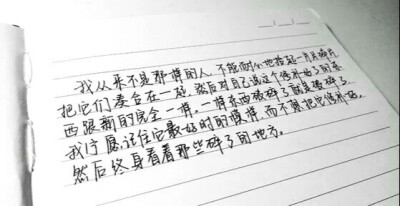 我从来不是那样的人,不能耐心地拾起一片片碎片
把它们凑合在一起,然后对自己说这个修补好了的东
西跟新的完全一样。一样东西破碎了就是破碎了
我宁愿记住它最好时的模样,而不想把它修补好。
然后终身看着那些碎了的地方。